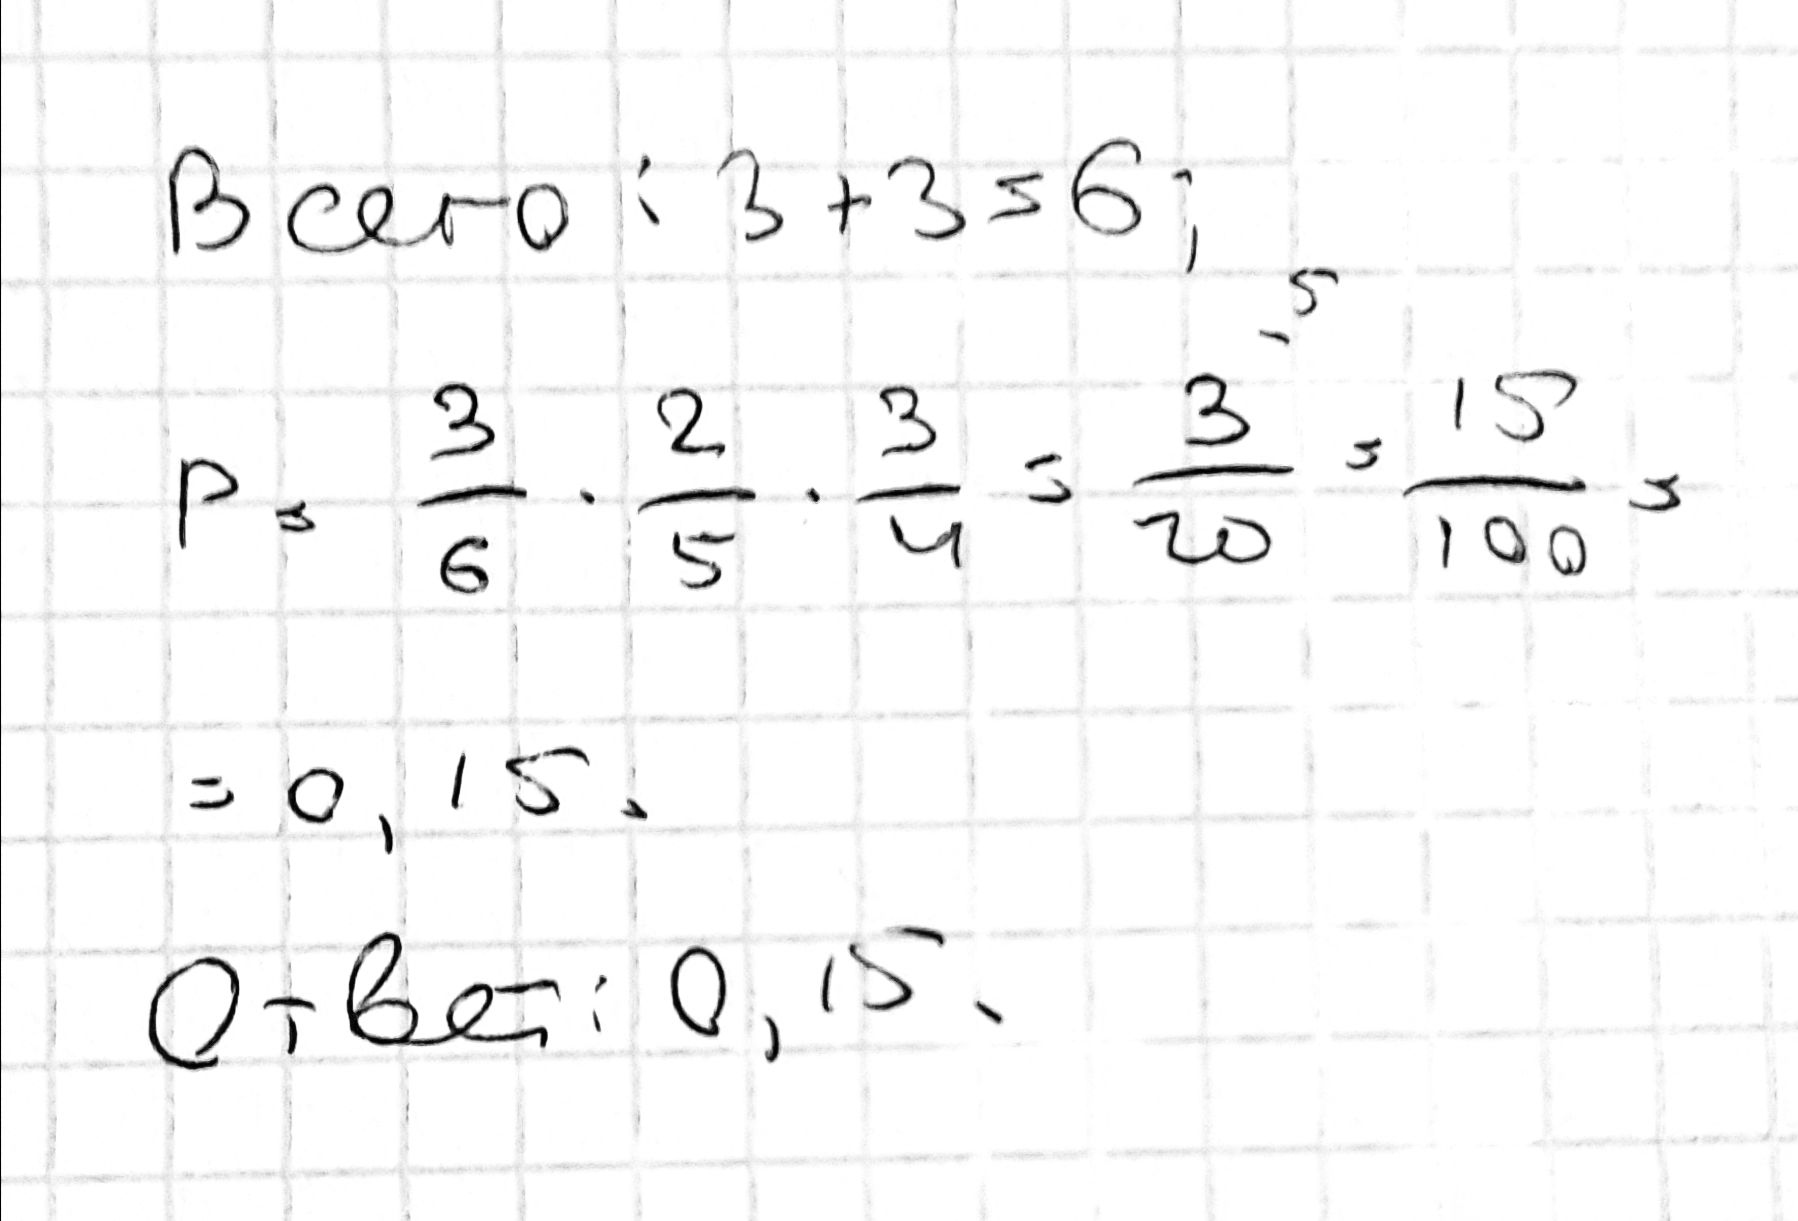 Всего: 3+3=6;
P = 3/6 · 2/5 · 3/4 = 3/20 ·5 = 15/100 =
= 0,15.
Ответ: 0,15.